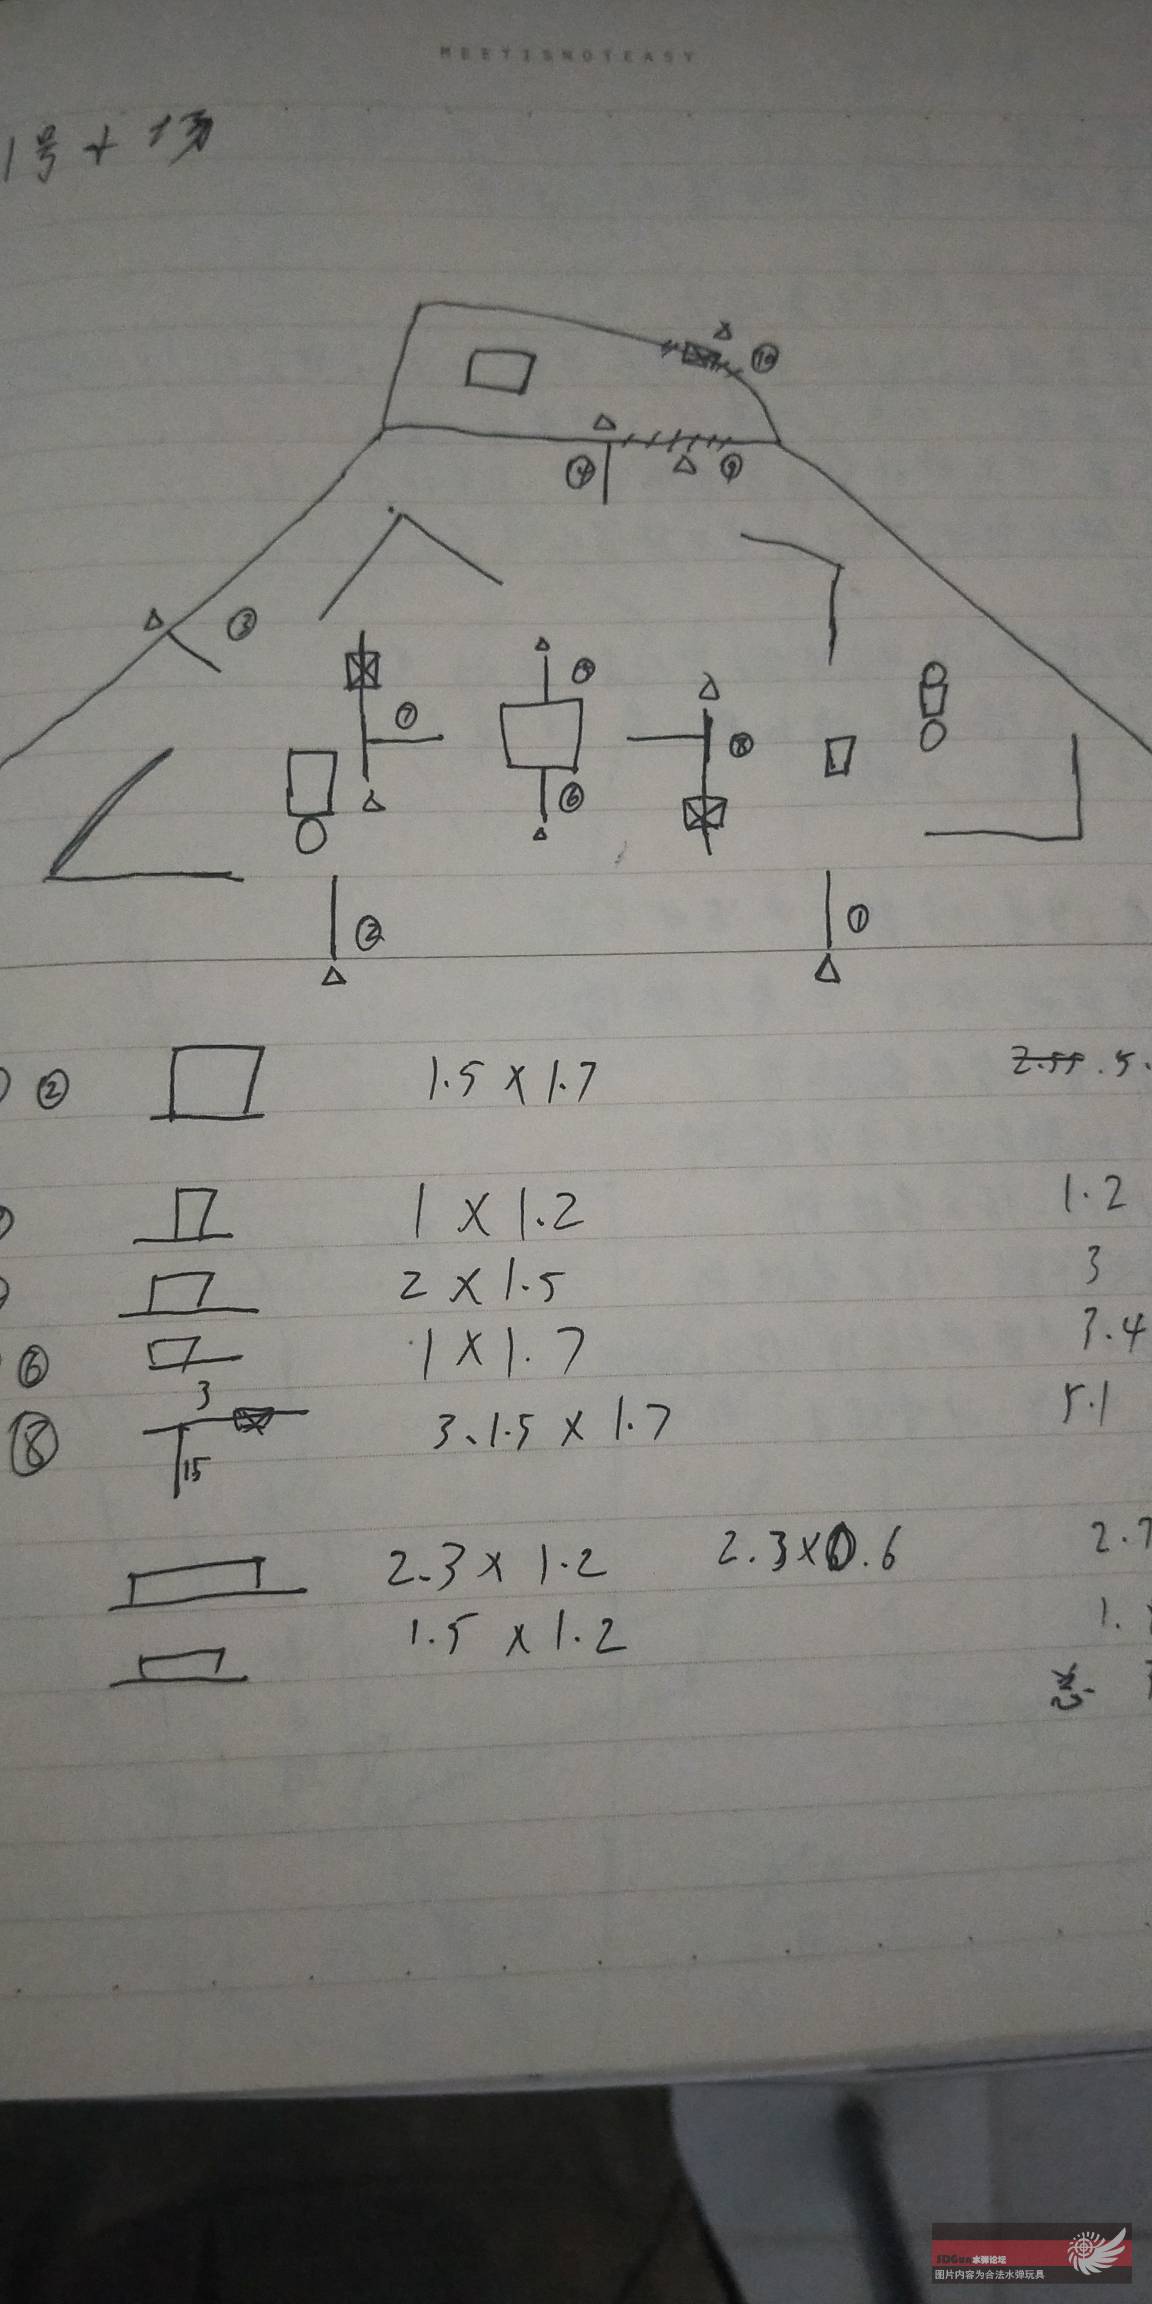 MEETISNOTEASY
1号
⑩
④ ⑨
③
⑦
⑧
⑥
② ①
② 1.5 × 1.7
1 × 1.2 1.2
2 × 1.5 3
⑥ 1 × 1.7 3.4
3
⑧ 3、1.5 × 1.7 5.1
15
2.3 × 1.2 2.3×0.6
1.5 × 1.2
总
SDGun水弹论坛
图片内容为合法水弹玩具